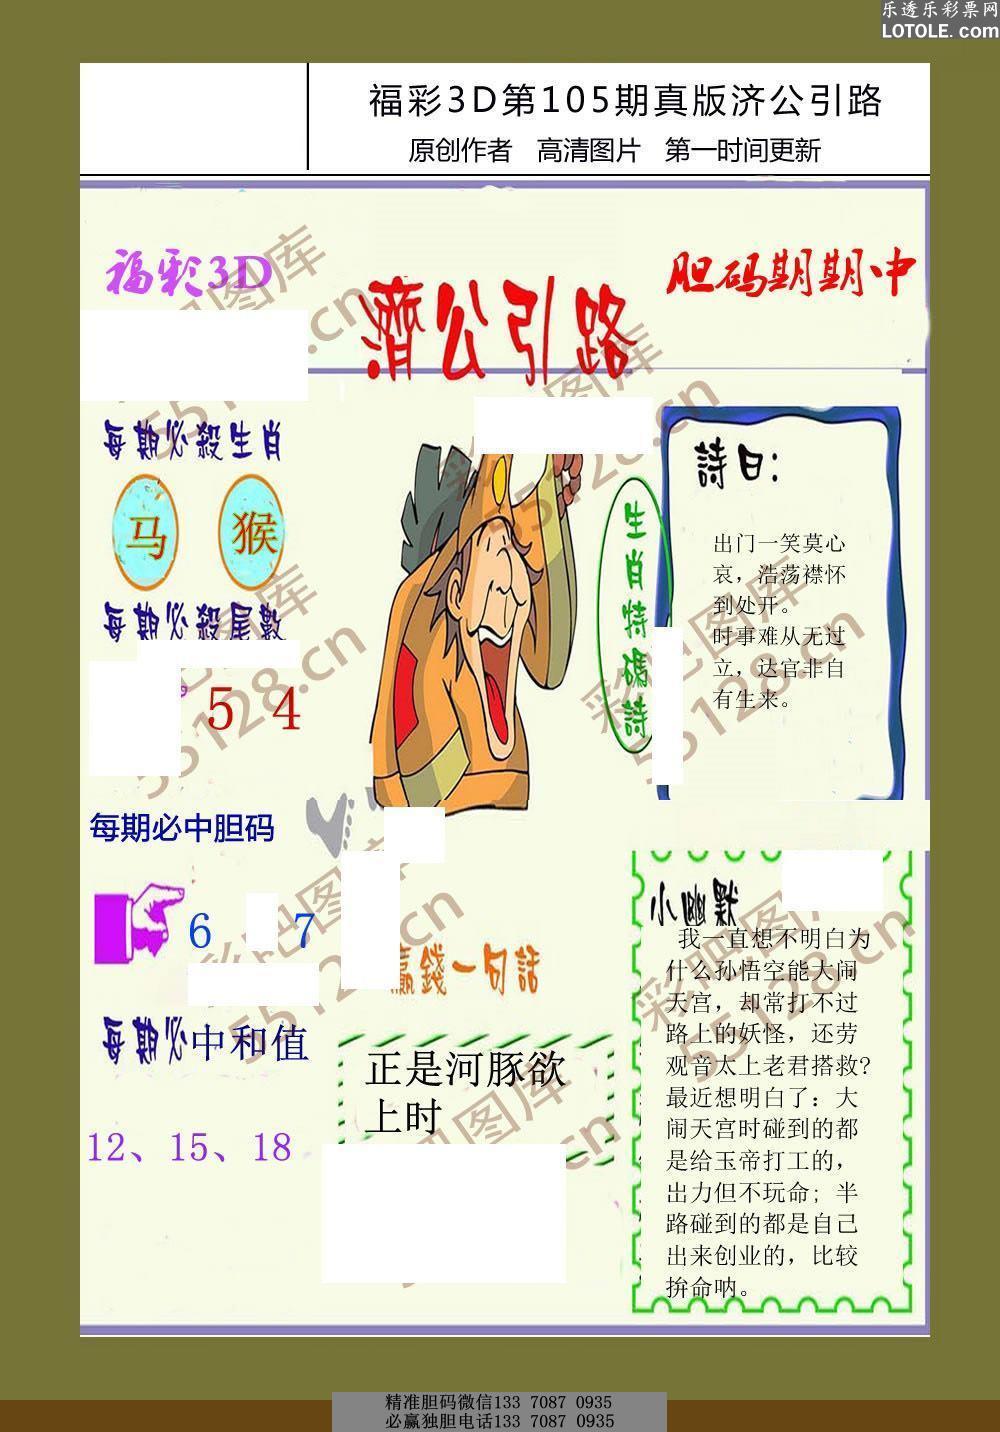 乐透乐彩票网
LOTOLE.com
福彩3D第105期真版济公引路
原创作者 高清图片 第一时间更新
福彩3D
濟公引路
胆码期期中
每期必殺生肖
马 猴
每期必殺尾數
5 4
生肖特碼詩
詩曰：
出门一笑莫心
哀，浩荡襟怀
到处开。
时事难从无过
立，达官非自
有生来。
每期必中胆码
6 7
赢錢一句話
每期必中和值
正是河豚欲
上时
12、15、18
小幽默
我一直想不明白为
什么孙悟空能大闹
天宫，却常打不过
路上的妖怪，还劳
观音太上老君搭救?
最近想明白了：大
闹天宫时碰到的都
是给玉帝打工的，
出力但不玩命；半
路碰到的都是自己
出来创业的，比较
拚命呐。
彩吧图库
55128.cn
精准胆码微信133 7087 0935
必赢独胆电话133 7087 0935